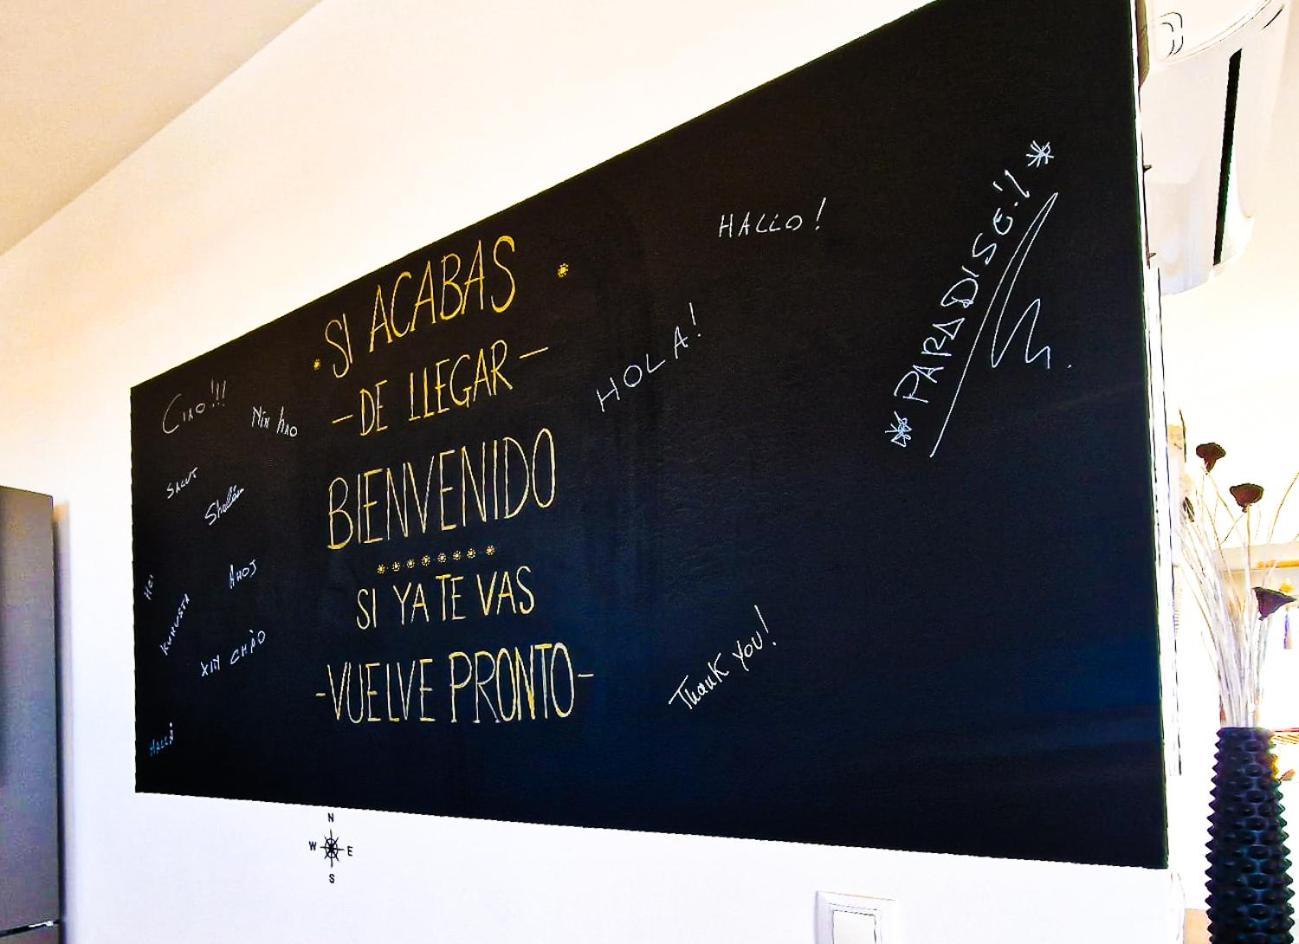 SI ACABAS
-DE LLEGAR-
BIENVENIDO
SI YA TE VAS
-VUELVE PRONTO-
CIAO!!!
Nin hao
SALUT
Shalóm
AHOJ
HOI
XIN CHÀO
HALLÅ
HOLA!
HALLO!
Thank you!
PARADISE
N
W E
S